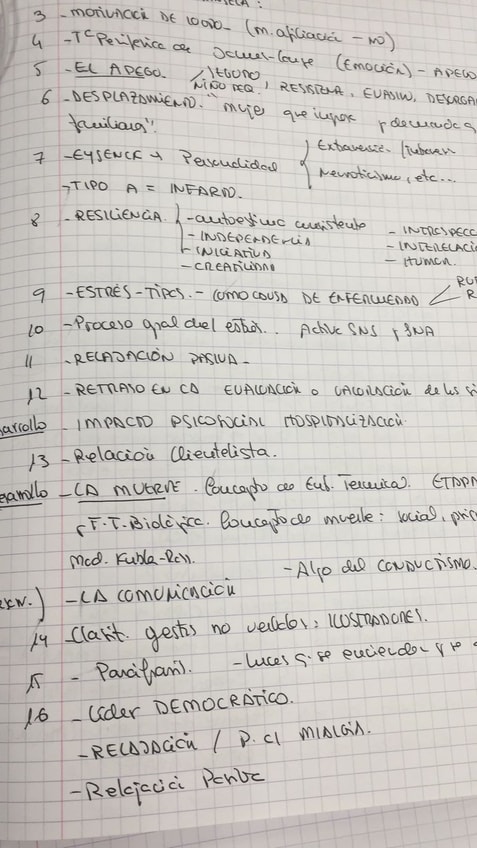 3 - MOTIVACIÓN DE LOGRO - (M. afiliació - NO)
4 - Tª Periférica de James-Lange (Emoción) - APEGO
5 - EL APEGO. SEGURO
NIÑO PEQ, RESISTENA, EVASIVO, DESORGA
6 - DESPLAZAMIENTO. "mujer que
familiar".
7 - EYSENCK → Personalidad Extraversión
Neuroticismo, etc...
→ TIPO A = INFARTO.
8 - RESILIENCIA. - autoestima consistente - INTROSPECC
- INDEPENDENCIA - INTERELACIO
- INICIATIVA - HUMOR.
- CREATIVIDAD
9 - ESTRÉS - TIPOS. - COMO CAUSA DE ENFERMEDAD
10 - Proceso gral del estrés. Activa SNS y SNA
11 - RELAJACIÓN PASIVA -
12 - RETRASO EN LA EVALUACIÓN o VALORACIÓN de los
arrollo - IMPACTO PSICOSOCIAL HOSPITALIZACIÓN.
13 - Relación Clientelista.
- LA MUERTE. Concepto de Enf. Terminal. ETAPA
F. T. Biológica. Concepto de muerte: social,
Mod. Kubla-Ross. - Algo del CONDUCTISMO.
- LA COMUNICACIÓN
14 - Clasif. gestos no verbales: ILUSTRADORES.
15 - Parafrasis. - Luces q se encienden y se
16 - Líder DEMOCRÁTICO.
- RELAJACIÓN / P. MIALGIA.
- Relajación